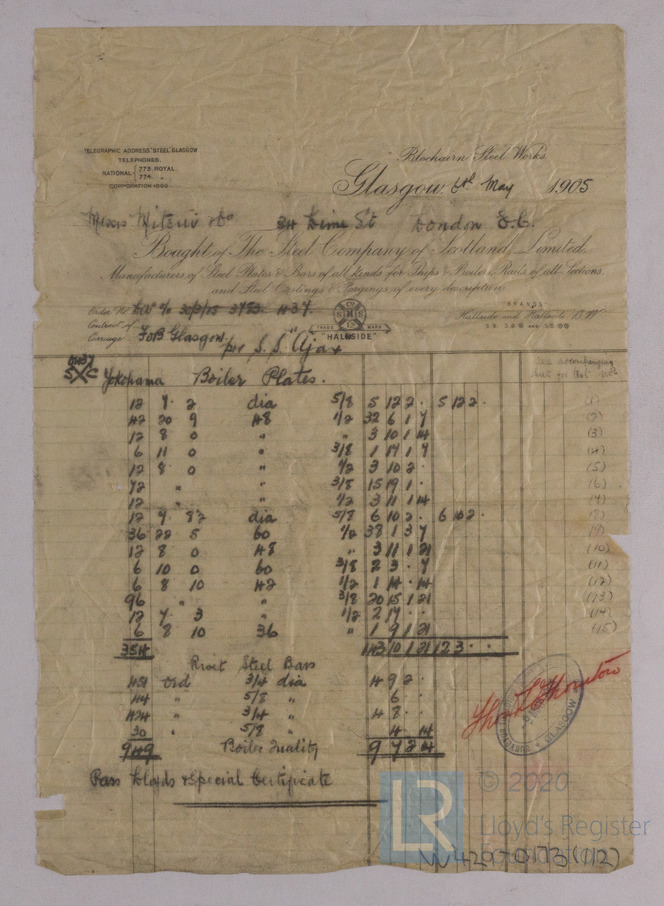 TELEGRAPHIC ADDRESS "STEEL" GLASGOW
TELEPHONES.
NATIONAL 773 ROYAL.
774 "
CORPORATION
Blochairn Steel Works.
Glasgow, 6th May 1905
Messrs Mitsui & Co 34 Lime St London E.C.
Bought of The Steel Company of Scotland, Limited,
Manufacturers of Steel Plates & Bars of all kinds for Ships & Boilers, Rails of all Sections,
and Steel Castings & Forgings of every description.
Order No
Contract of
Carriage FOB Glasgow per S.S. "Ajax
BRANDS
Hallside and
TRADE MARK
"HALLSIDE"
S C
Yokohama Boiler Plates.
12 7 2 dia 5/8 5 12 2 . 5 12 2 . (1)
42 20 9 48 1/2 32 6 1 7 (2)
12 8 0 " " 3 10 1 14 (3)
6 11 0 " 3/8 1 17 1 7 (4)
12 8 0 " 1/2 3 10 2 . (5)
72 " " 3/8 15 19 1 . (6)
12 " " 1/2 3 11 1 14 (7)
12 7 8 1/2 dia 5/8 6 10 2 . 6 10 2 . (8)
36 22 5 60 1/2 38 1 3 7 (9)
12 8 0 48 " 3 11 1 21 (10)
6 10 0 60 3/8 2 3 . 7 (11)
6 8 10 42 1/2 1 14 . 14 (12)
96 " " 3/8 20 15 1 21 (13)
12 7 3 " 1/2 2 17 . . (14)
6 8 10 36 " 1 9 1 21 (15)
354 143 10 1 21 12 3 . .
Rivet Steel Bars
451 3/4 dia 4 9 2 .
44 " 5/8 " 6 . .
424 " 3/4 " 4 8 . .
30 " 5/8 " 4 . 14
949 Boiler Quality 9 7 2 14
Pass Lloyds & Special Certificate
GLASGOW
© 2020
LR
Lloyd's Register
Foundation
W429-0173 (1/2)